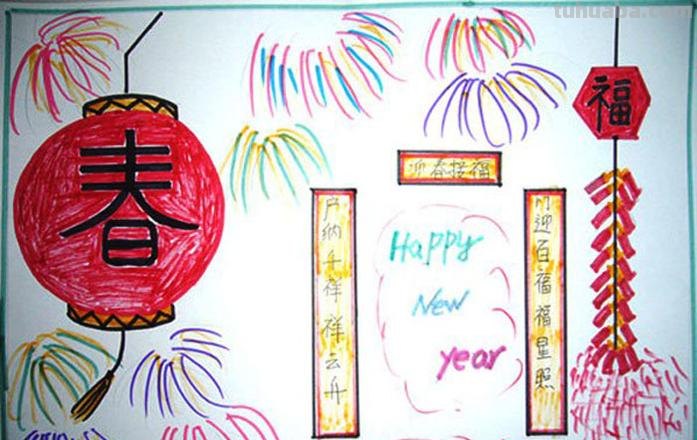 tuhuaba.com
春
福
迎春接福
门迎百福福星照
户纳千祥祥云升
Happy
New
year